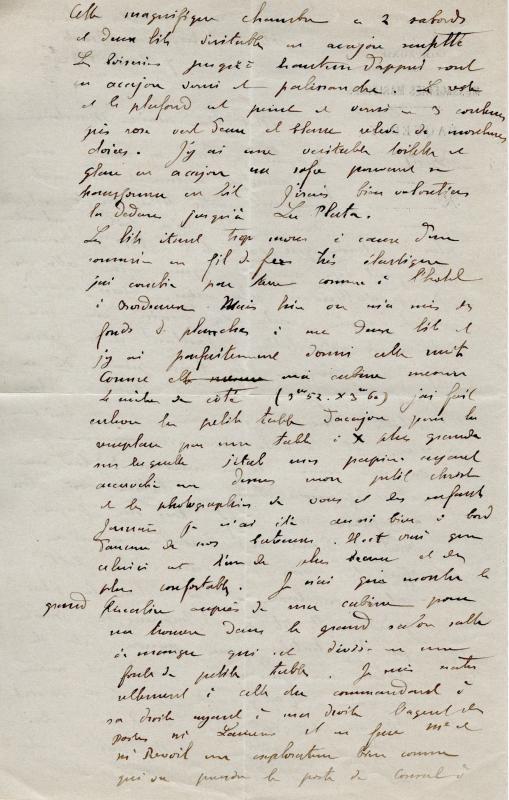 Cette magnifique chambre a 2 sabords
et deux lits veritable en acajou
Les boiseries jusqu'à hauteur d'appui sont
en acajou verni et palissandre. Le reste
et le plafond est peint et verni en 3 couleurs
gris rose vert d'eau et blanc relevé de moulures
dorées. J'y ai une veritable toilette et
glace en acajou un sofa pouvant se
transformer en lit J'irais bien volontiers
la dedans jusqu'à La Plata.
Les lits étant trop mous à cause d'un
sommier en fil de fer très élastique
j'ai couché par terre comme à l'hotel
à Bordeaux. Mais hier on m'a mis des
fonds de planches à mes deux lits et
j'y ai parfaitement dormi cette nuit
Comme ma cabine mesure
de côté (3m52 × 3m60) j'ai fait
enlever la petite table d'acajou pour la
remplacer par une table à × plus grande
sur laquelle j'étale mes papiers ayant
accroché au dessus mon petit christ
et les photographies de vous et des enfants
Jamais je n'ai été aussi bien à bord
d'aucun de nos bateaux. Il est vrai que
celui ci est l'un des plus beaux et des
plus confortables. Je n'ai qu'a monter le
grand escalier auprès de ma cabine pour
me trouver dans le grand salon salle
à manger qui est divisé en une
foule de petites tables. Je suis natu
rellement à celle du commandant à
sa droite ayant à ma droite l'agent des
postes Mr et en face Mr et
Me Revoil un explorateur bien connu
qui va prendre le poste de Consul à